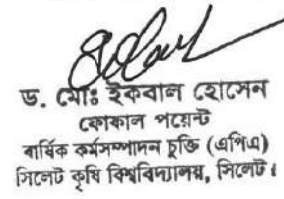 ড. মোঃ ইকবাল হোসেন
ফোকাল পয়েন্ট
বার্ষিক কর্মসম্পাদন চুক্তি (এপিএ)
সিলেট কৃষি বিশ্ববিদ্যালয়, সিলেট।